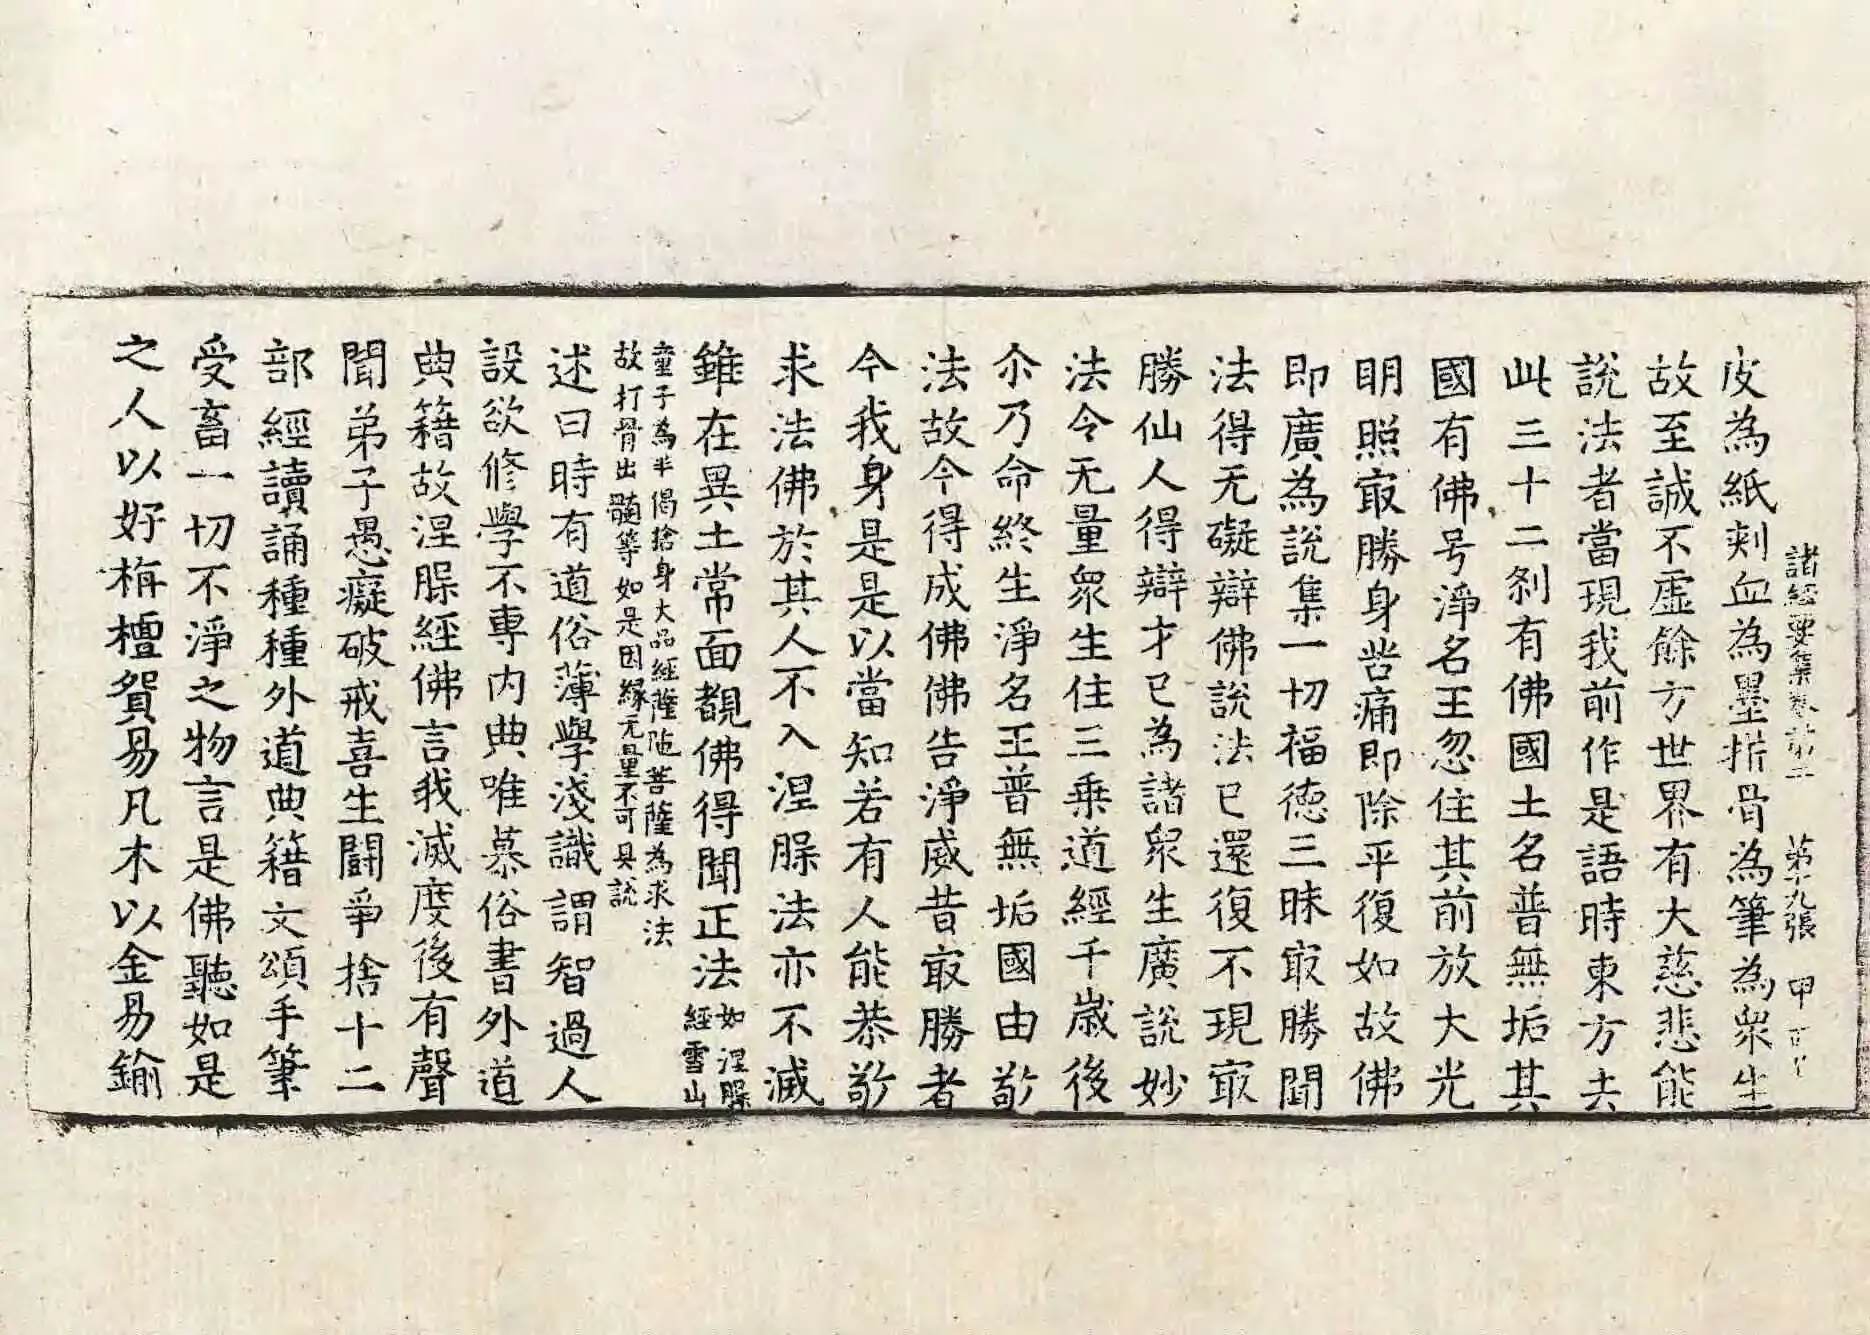 諸經要集卷第二 第十九張 甲
皮為紙刾血為墨析骨為筆為衆生
故至誠不虛餘方世界有大慈悲能
說法者當現我前作是語時東方去
此三十二刹有佛國土名普無垢其
國有佛号淨名王忽住其前放大光
明照㝡勝身苦痛即除平復如故佛
即廣為說集一切福德三昧㝡勝聞
法得无礙辯佛說法已還復不現㝡
勝仙人得辯才已為諸衆生廣說妙
法令无量衆生住三乗道經千歲後
尒乃命終生淨名王普無垢國由敬
法故今得成佛佛告淨威昔㝡勝者
今我身是是以當知若有人能恭敬
求法佛於其人不入涅槃法亦不滅
雖在異土常面覩佛得聞正法如涅槃經雪山
童子為半偈捨身大品經薩陁菩薩為求法
故打骨出髓等如是因緣无量不可具說
述曰時有道俗薄學淺識謂智過人
設欲修學不專內典唯慕俗書外道
典籍故涅槃經佛言我滅度後有聲
聞弟子愚癡破戒喜生鬪爭捨十二
部經讀誦種種外道典籍文頌手筆
受畜一切不淨之物言是佛聽如是
之人以好栴檀貿易凡木以金易鍮